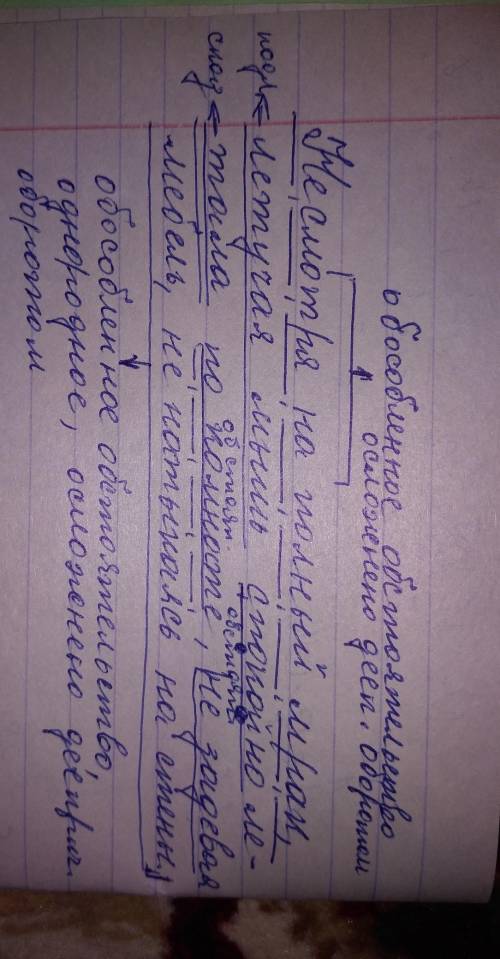 обособленное обстоятельство
осложнено дееп. оборотом
Несмотря на полный мрак,
подл ← летучая мышь спокойно ле-
обстоят. обстоят.
сказ ← тала по комнате, не задевая
мебель, не натыкаясь на стены.
обособленное обстоятельство,
однородное, осложнено дееприч.
оборотом